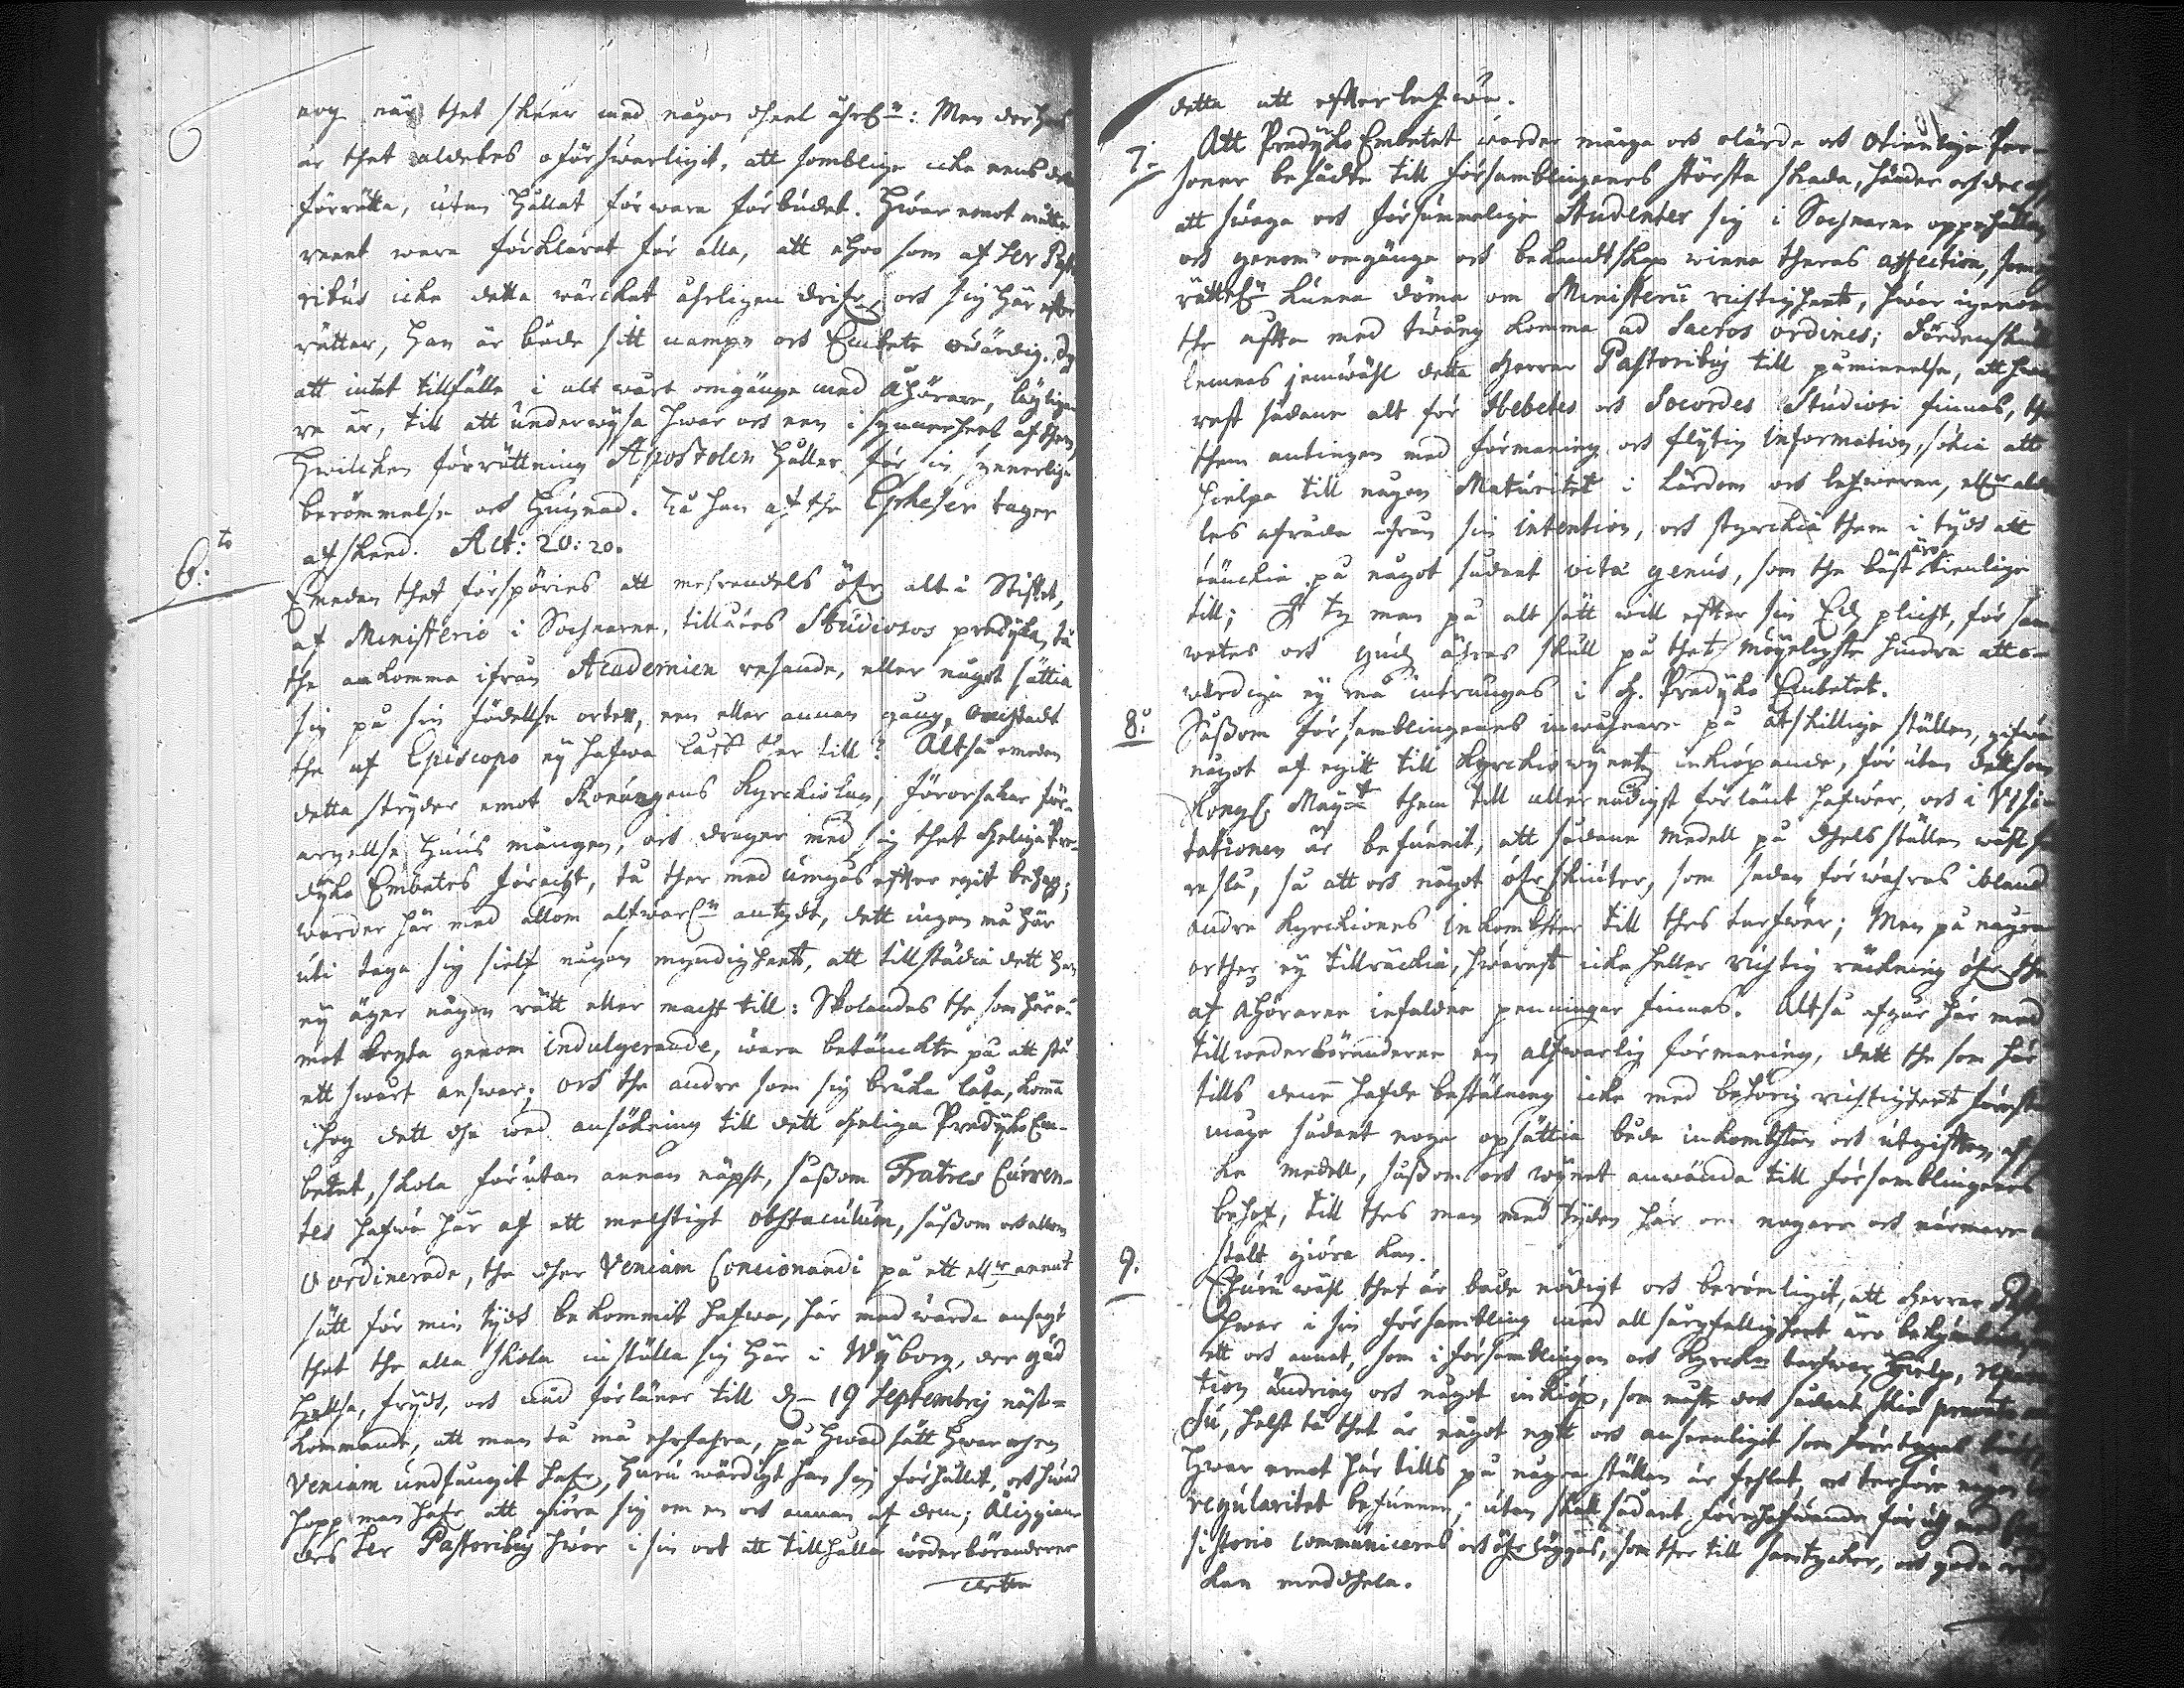 nog när thet skeer med någon deel åhrl:n: Men der hoos
är thet aldeles oförswarligit, att somblige icke eens det
förrätta, utan hållat för wara förbudet. Hwar emot måtte
reent wara förklarat för alla, att ehoo som af her Pasto
ribus icke detta wärcket ährligen drifr, och sig här efter
rätter, han är både sitt nampn och Embete owärdig. Ty
att intet tillfälle i alt wårt omgänge med Åhörare, läglige
re är, till att underwysa hwar och een i synnerheet af them,
Hwilcken förrättning Apostolen håller för sin synnerlige
berömmelse och hugnad. Tå han af the Epheser tager
afskeed. Act: 20: 20.
6:to
Emedan thet förspöries att mehrendels öfr alt i Stiftet,
af Ministerio i Sochnarne, tillåtes Studiosos predyka, tå
the ankomma ifrån Academien resande, eller något sättia
sig på sin födellse orten, een eller annan gång, oansedt
the af Episcopo ey hafwa låf ther till? Altså emedan
detta stryder emot Konungens Kyrckiolag, förorsakar för-
argellse huus mången, och drager med sig thet heliga Pre-
dyko Embetes föracht, tå ther med umgås efter egit behag;
warder här med allom alfwarl:n antydt, dett ingen må här
uti taga sig sielf någon myndigheet, att tillstädia dett han
ey äger någon rätt eller macht till: Skolandes the som häre-
mot bryta genom indulgerande, wara betänckte på att stå
ett swårt answar; och the andre som sig bruka låta, komma
ihog dett the wed ansökning till dett heliga Predyko Em-
betet, skola förutan annan näpst, såsom Fratres Curren-
tes hafwa här af ett mechtigt obstaculum, såsom och allom
Oordinerade, the ther Veniam Concionandi på ett ellr annat
sätt för min tydh bekommit hafwa, här med warde ansagt
thet the alla skola inställa sig här i Wyborg, der gud
hellsa, frydh, och nåd förlåner till d. 19 Septembrij näst-
kommande, att man tå må ehrfahra, på hwad sätt hwar och en
Veniam undfångit hafr, huru wärdigt han sig förhållit, och hwad
hopp man hafr att giöra sig om en och annan af dem; Åliggian-
des her Pastoribus hwar i sin ort att tillhålla wederböranderne
detta
detta att efterlefwa.
7:
Att Predyko Embetet warder många och olärde och otienlige Per-
soner besadte till Församblingenes största skada, händer och der af
att swaga och försummelige Studenter sig i Sochnarne oppehålla
och genom omgänge och bekandtskap winna theras affection, som ey
rättel:n kunna döma om Ministerii richtigheet, hwar igenom
the ofta med twång komma ad Sacros ordines; Fördenskull
lemnas jemwähl detta herrar Pastoribus till påminnelse, att hwa
rest sådane alt för Hebetes och Socordes Studiosi finnas, the
them antingen med förmaning och flytig information, sökia att
hielpa till någon Maturitet i Lärdom och lefwerne, ellr alde
les afråda ifrån sin intention, och styrckia them i tydh att
tänckia på något sådant vitæ genus, som the bäst äro tienlige
till; Ty man på alt sätt will efter sin Edz plicht, för sam
wetes och gudz ähras skull på thet möyeligste hindra att o-
wärdiga ey må intrengas i H. Predyko Embetet.
8:o
Såsom Församblingenes inwåhnare på åtskillige ställen, gifwa
något af egitt till Kyrckiowynetz inkiöpande, för utan dett som
Kongl. May:tt them till allernådigst förlänt hafwer, och i Visi-
tationen är befunnit, att sådane medell på dhels ställen wähl för
reslå, så att och något öfrskiuter, som sedan förwahras ibland
andra Kyrckiones inkombster till thes tarfwer; Men på någre
orther ey tillräckia, hwarest icke heller richtig räckning öfr the
af Åhörarne infaldne penningar finnes. Altså afgår här med
till wederböranderne en alfwarlig förmaning, dett the som här
tills denne hafde bestälning icke med behörig richtigheet förestå
måge sådant noga opsättia både inkombsten och utgiften af
ke medell, såsom och wynet anwända till församblingenes
behof, till thes man med tyden här om nogare och närmare an
stalt giöra kan.
9.
Ehuru wähl thet är både nödigt och berömligit, att herrar Past
hwar i sin församblling med all sårgfälligheet äro bekymbrade
ett och annat, som i församblingen och Kyrckan tarfwar hielp, repara
tion ändring och något inkiöp, som måste doch sådant skie
su, helst tå thet är något nytt och anseenligit som företages
hwar emot här tills på några ställen är fehlat, och therföre någon ir
regularitet befunnen; utan skall sådant förehafwande för uth med Con
sistorio communiceras och öfrläggas, som ther till samtycker, och goda rådh
kan meddhela.